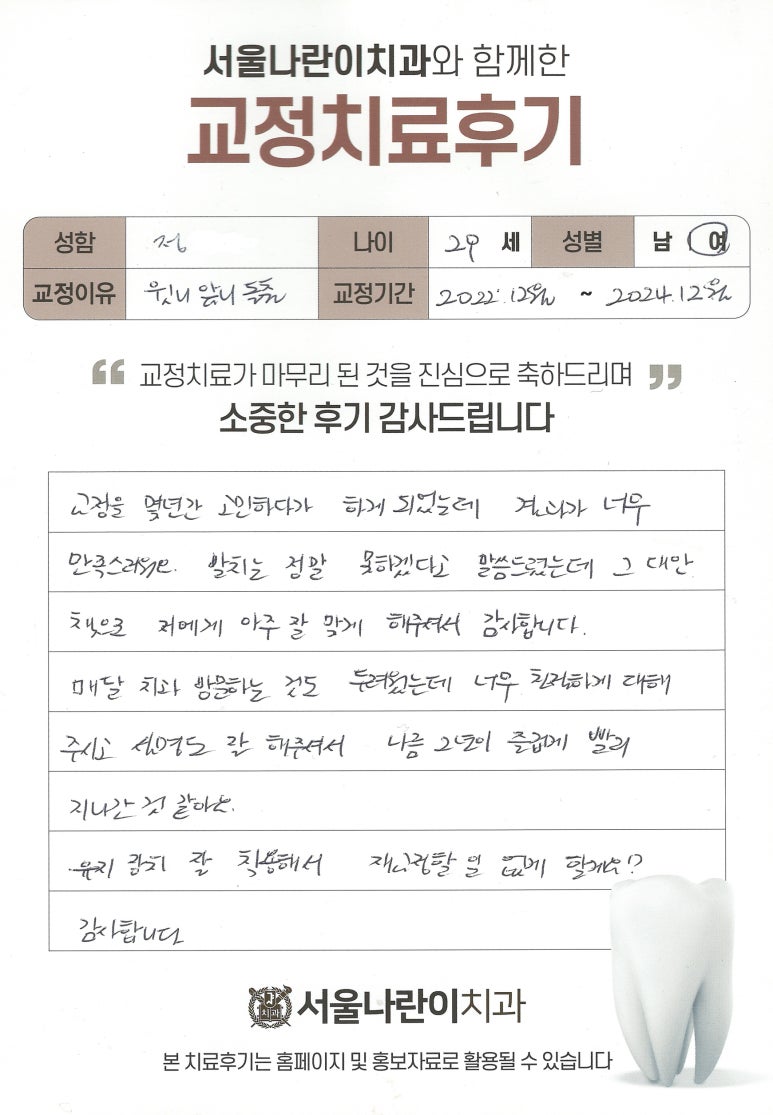 서울나란이치과와 함께한
교정치료후기
성함 정 나이 29 세 성별 남 | 여
교정이유 윗니 앞니 돌출 교정기간 2022.12월 ~ 2024.12월
“ 교정치료가 마무리 된 것을 진심으로 축하드리며 ”
소중한 후기 감사드립니다
교정을 몇년간 고민하다가 하게 되었는데 결과가 너무
만족스러워요. 발치는 정말 못하겠다고 말씀드렸는데 그 대안
책으로 저에게 아주 잘 맞게 해주셔서 감사합니다.
매달 치과 방문하는 것도 두려웠는데 너무 친절하게 대해
주시고 설명도 잘 해주셔서 나름 2년이 즐겁게 빨리
지나간 것 같아요.
유지 장치 잘 착용해서 재교정할 일 없게 할게요!?
감사합니다
치과
서울나란이치과
본 치료후기는 홈페이지 및 홍보자료로 활용될 수 있습니다